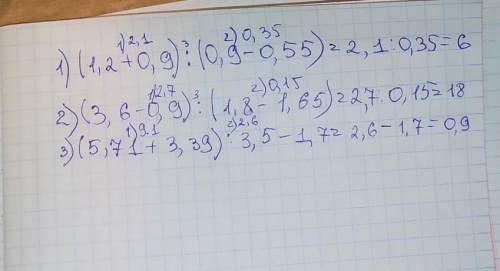 1)2,1 3 2)0,35
1) (1,2+0,9) : (0,9-0,55) = 2,1 : 0,35 = 6
1)2,7 3 2)0,15
2) (3,6-0,9) : (1,8-1,65) = 2,7 : 0,15 = 18
1)9,1 2)2,6
3) (5,71 + 3,39) : 3,5 - 1,7 = 2,6 - 1,7 = 0,9